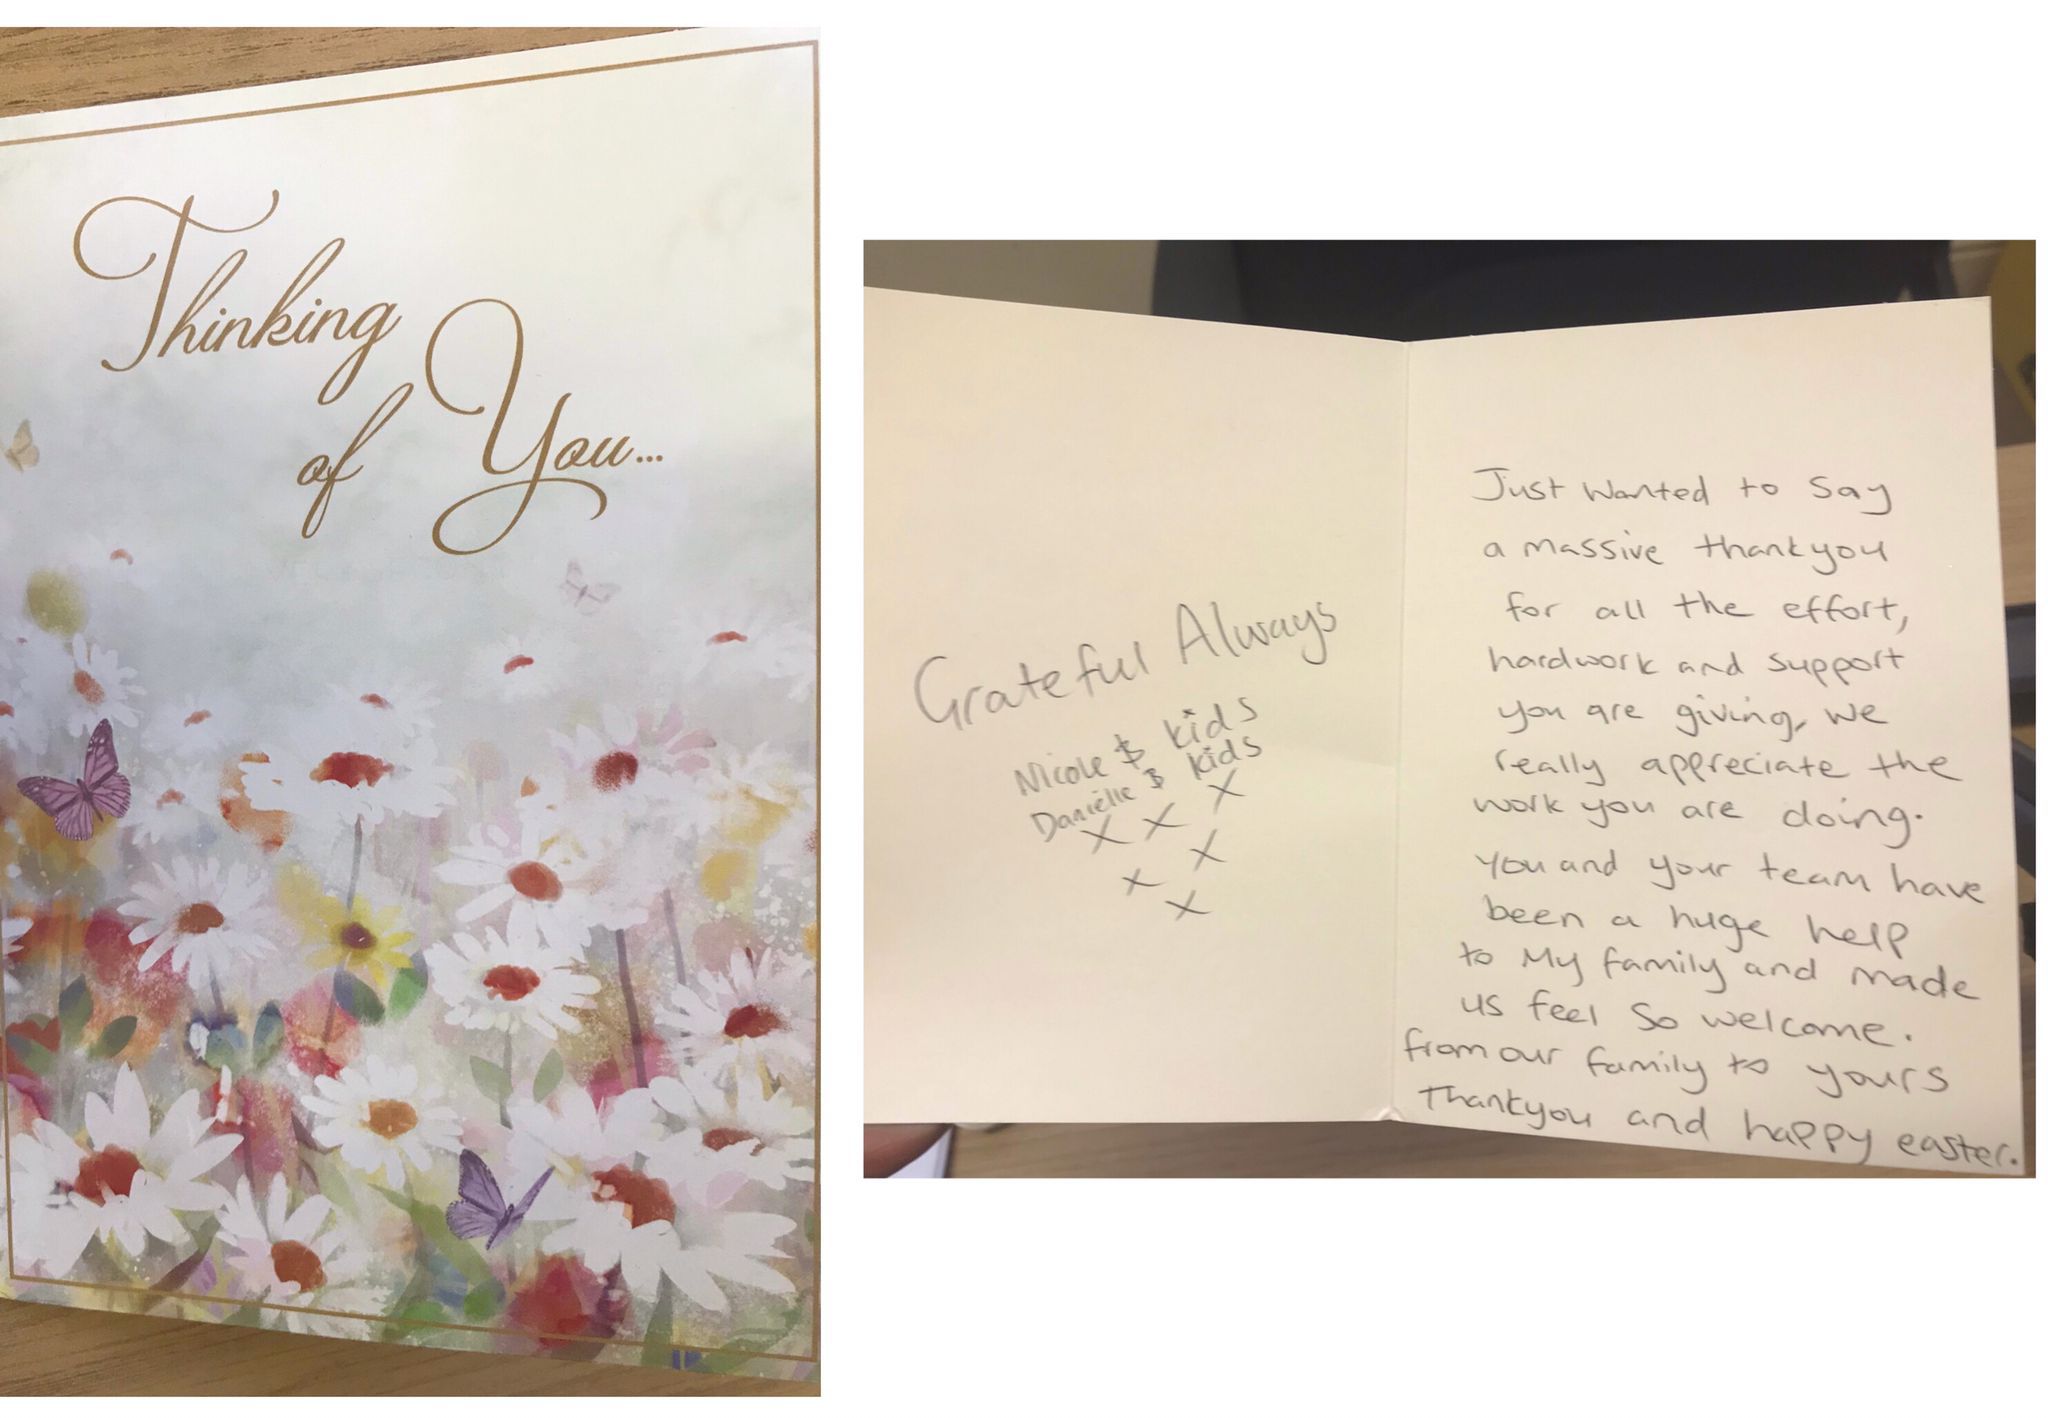 Thinking
of You...
Grateful Always
Nicole & kids
Danielle & kids
x x x
x
x
x
Just wanted to say
a massive thankyou
for all the effort,
hardwork and support
you are giving, we
really appreciate the
work you are doing.
You and your team have
been a huge help
to my family and made
us feel so welcome.
from our family to yours
Thankyou and happy easter.